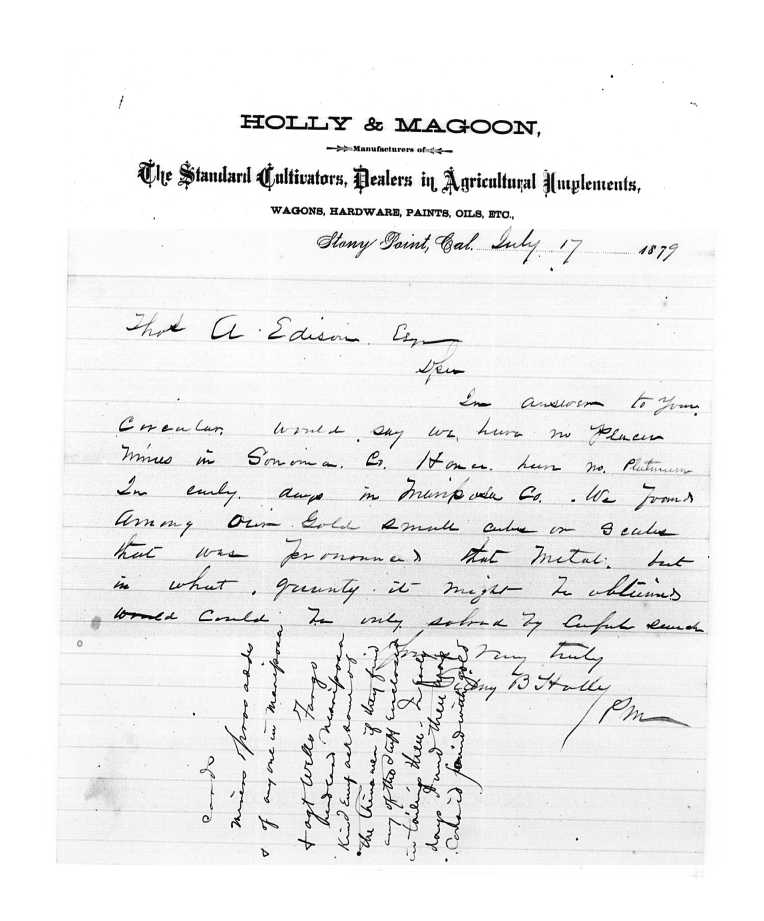 HOLLY & MAGOON,
Manufacturers of
The Standard Cultivators, Dealers in Agricultural Implements,
WAGONS, HARDWARE, PAINTS, OILS, ETC.,
Stony Point, Cal. July 17 1879
Thos A. Edison Esq
D Sir
In answer to your
Circular would say we have no Placer
Mines in Sonoma Co. Hence have no Platinum
In early days in Mariposa Co. We found
Among our Gold small cubes or scales
that was pronounced that Metal. but
in what quantity it might be obtained
would could be only solved by careful search
Yours Very truly
B Holly
PM
cards
miners process adds
of any one in mariposa
+ agt Wells Fargo
mariposa
Kind Enq
the Chinamen if they find
any of the stuff Enclosed
in tailings there. In Early
days found there
found with gold